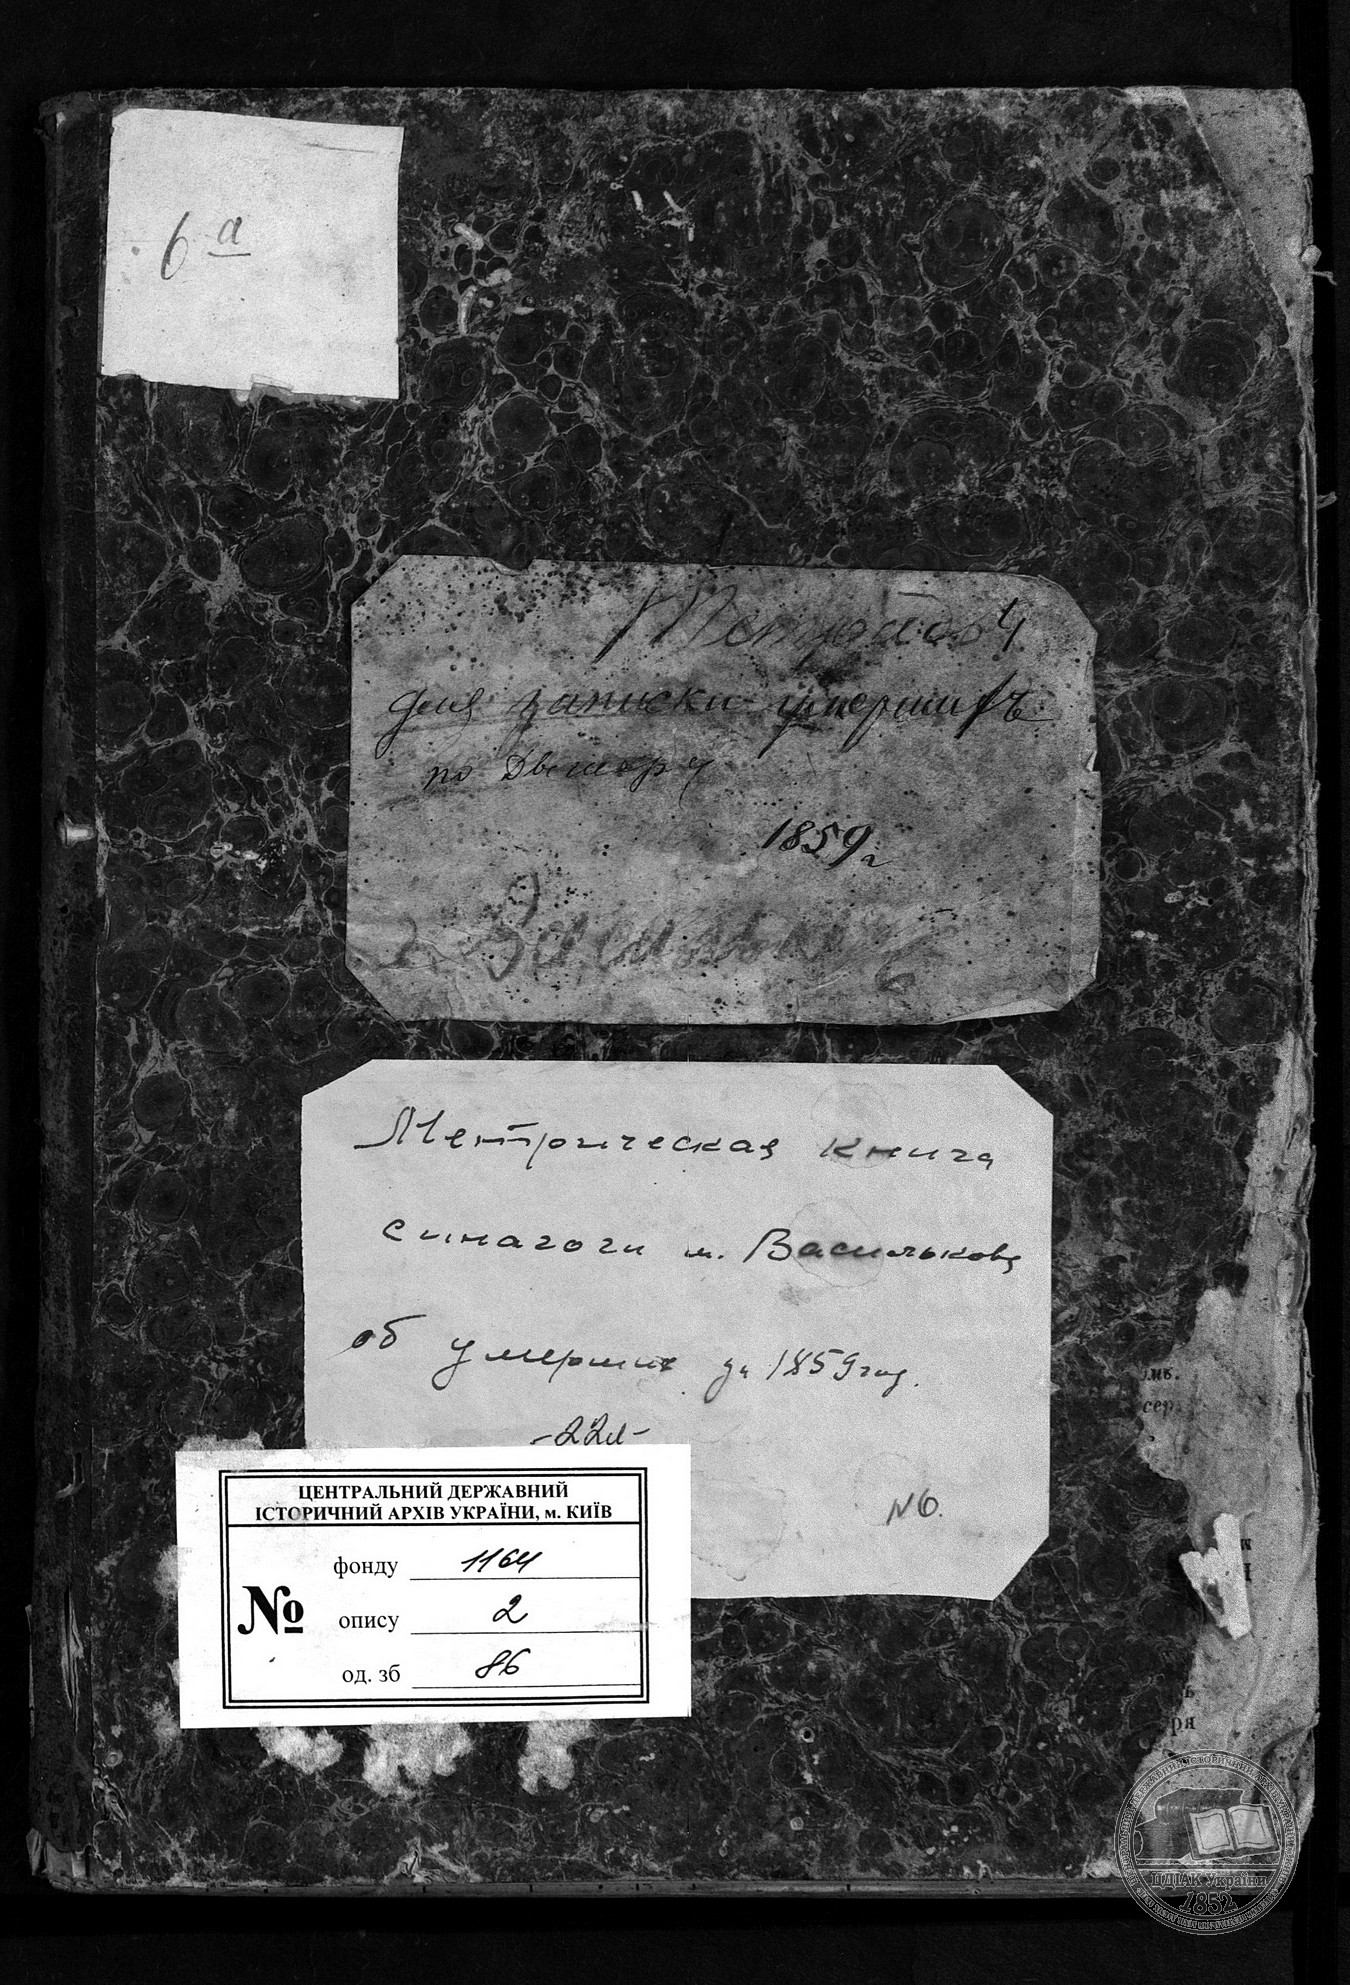 6 а
Тетрадь
для записки умершихъ
1859 г
г. Васильков
Метрическая книга
синагоги м. Василькова
об умерших за 1859 год.
-22л-
№6.
ЦЕНТРАЛЬНИЙ ДЕРЖАВНИЙ
ІСТОРИЧНИЙ АРХІВ УКРАЇНИ, м. КИЇВ
№
фонду 1164
опису 2
од. зб 86
ря
ЦДІАК України
1852